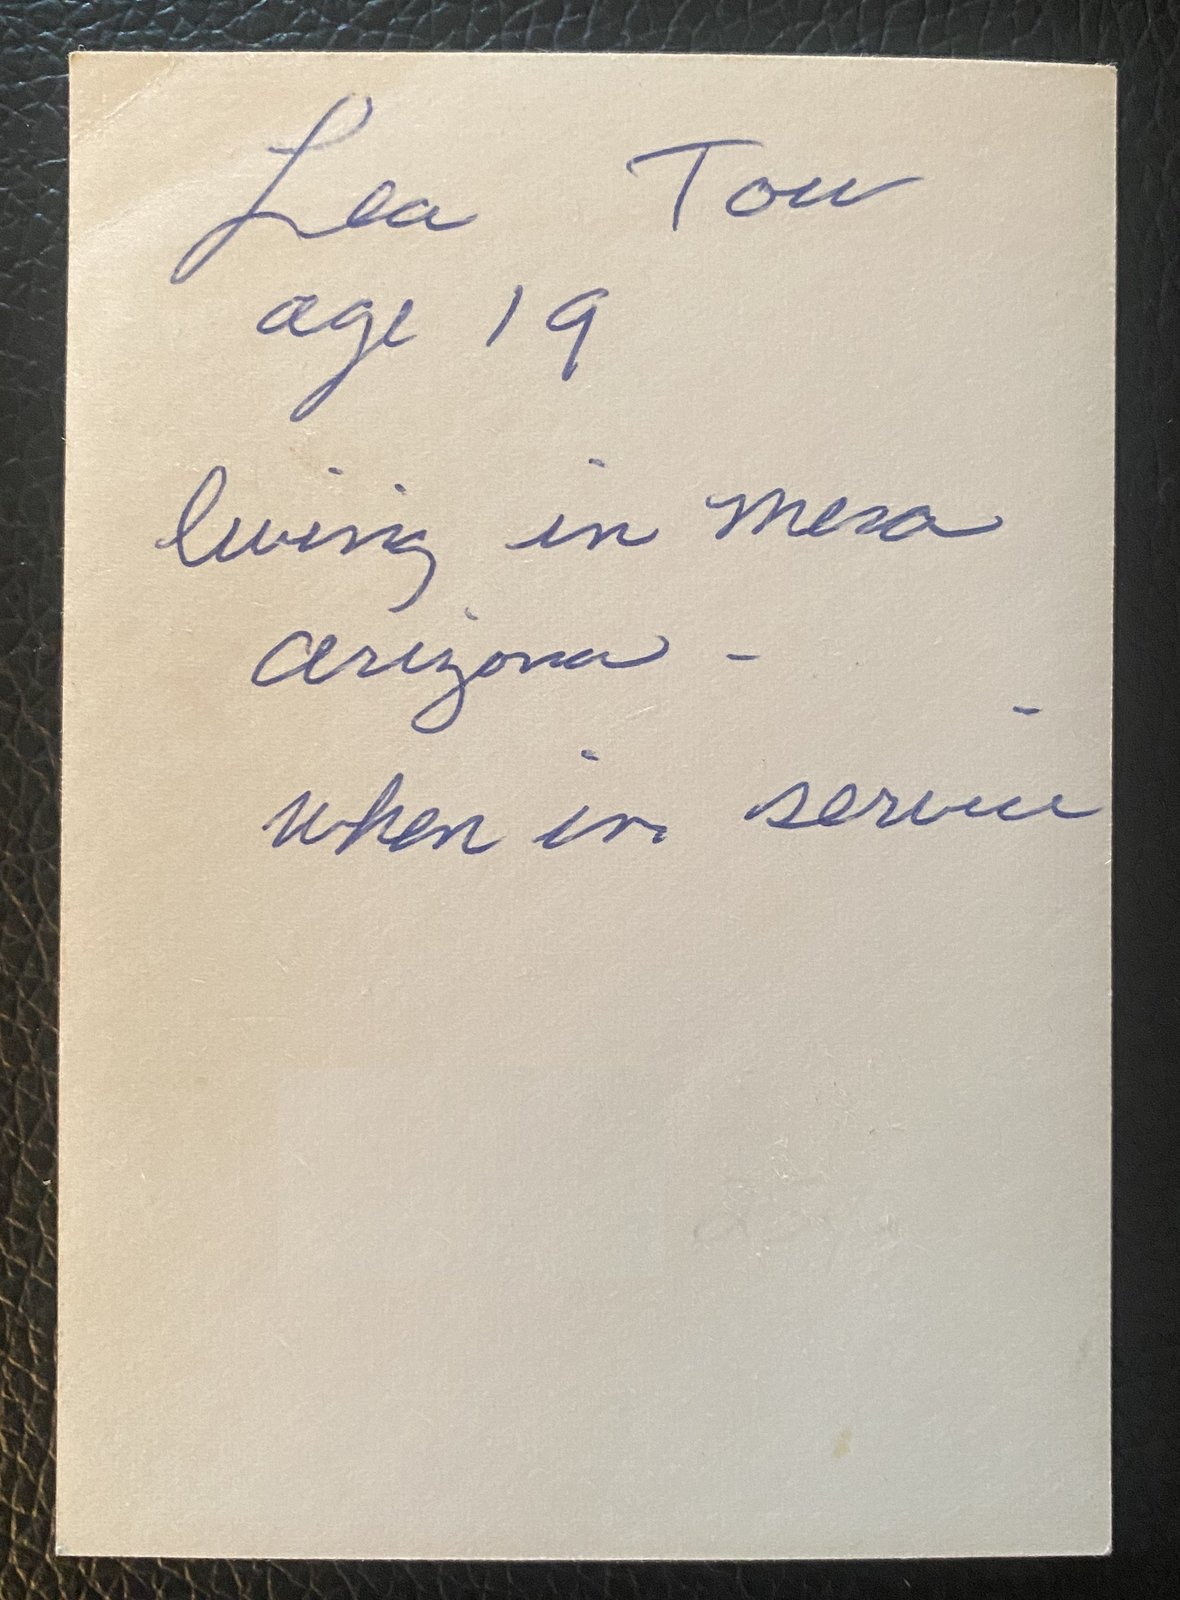 Lea Tow
age 19
living in mesa
arizona -
when in service